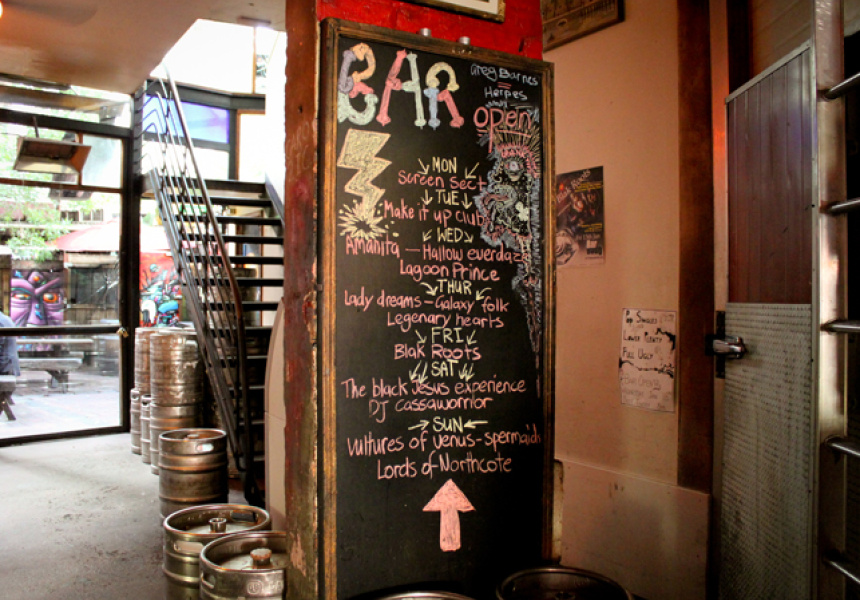 BAR
Greg Barnes
Herpes
open
MON
Screen sect
TUE
Make it up club
WED
Amanita – Hallow everdaze
Lagoon Prince
THUR
Lady dreams – Galaxy folk
Legenary hearts
FRI
Blak Roots
SAT
The black Jesus experience
DJ cassawarrior
SUN
Vultures of venus – spermaids
Lords of Northcote
Pop Singles
Lower Plenty
Full Ugly